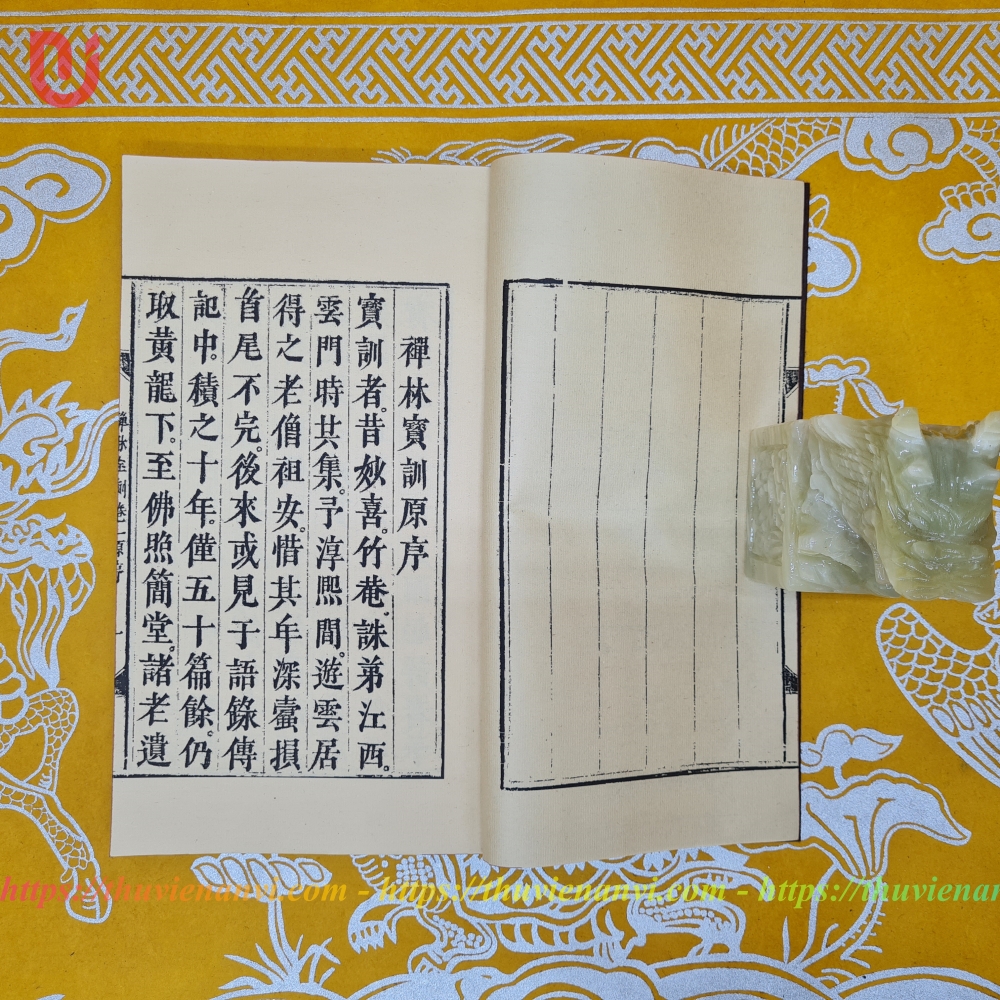 禪林寶訓原序
寶訓者。昔妙喜。竹菴。誅茅江西。
雲門時共集。予淳熈間。遊雲居
得之老僧祖安。惜其年深蠹損
首尾不完。後來或見于語錄傳
記中。積之十年。僅五十篇餘。仍
取黃龍下。至佛照簡堂。諸老遺
https://thuvienanvi.com - https://thuvienanvi.com - https://thuvienan